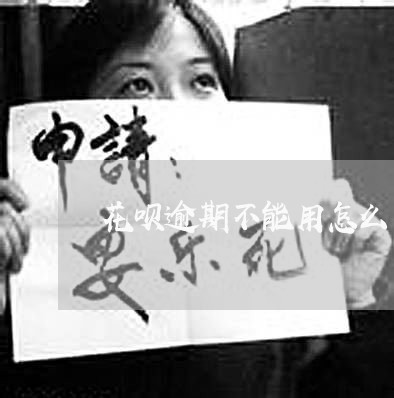 申請：
花呗逾期不能用怎么
安乐死